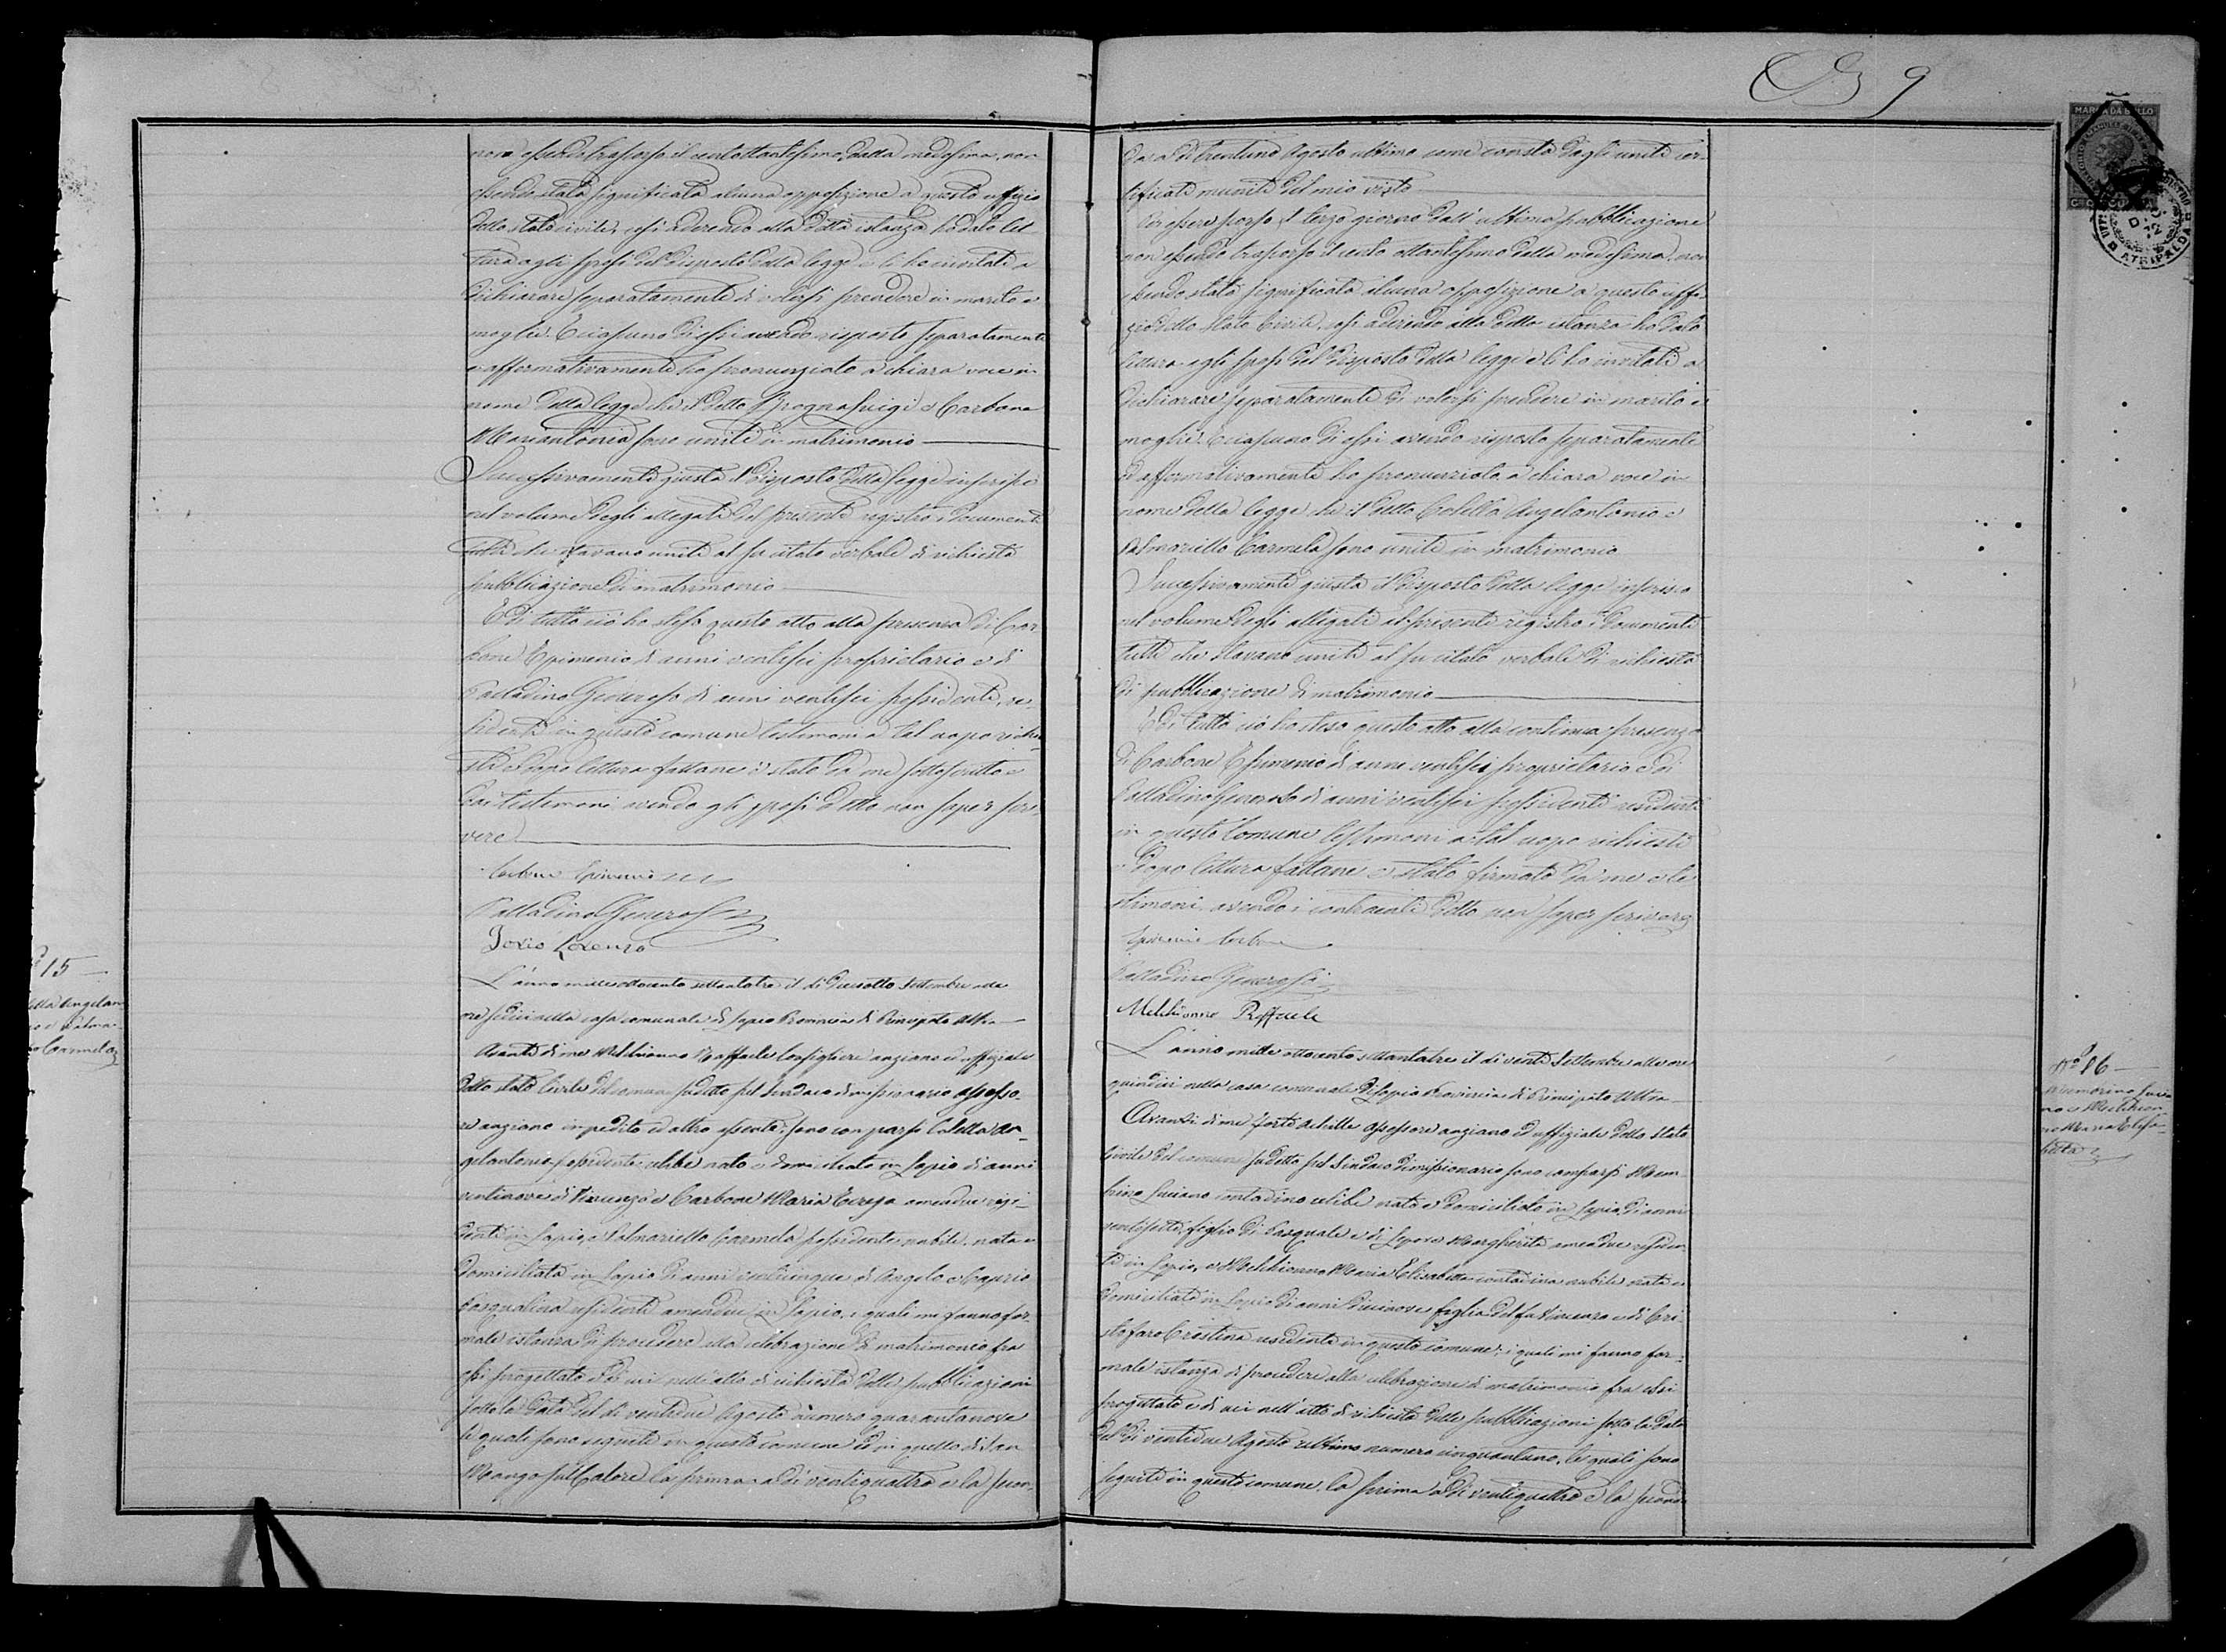 non essendo trasporso il centottantesimo dalla medesima, non
essendo stata significata alcuna opposizione a questo uffizio
dello stato civile, così aderendo alla detta istanza ho dato let
tura agli sposi del disposto della legge e li ho invitati a
dichiarare separatamente di volersi prendere in marito e
moglie. E ciascuno di essi avendo risposto separatamente
e affermativamente ho pronunziato a chiara voce in
nome della legge che il detto Brogna Luigi e Carbone
Mariantonia sono uniti in matrimonio
Successivamente giusta il disposto della legge inserisco
nel volume degli allegati del presente registro i documenti
tutti che stavano uniti al su citato verbale di richiesta
pubblicazione di matrimonio
E di tutto ciò ho steso questo atto alla presenza di Car
bone Epimenio di anni ventisei proprietario e di
Palladino Generoso di anni ventisei possidente, re-
sidenti in questo comune testimoni a tal uopo richie
sti e dopo lettura fattane è stato da me sottoscritto e
dai testimoni avendo gli sposi detto non saper scri
vere
Carbone Epimenio
Palladino Generoso
Forte Lorenzo
N° 15
Colella Angelan
tonio e Palma
riello Carmela
L'anno milleottocento settantatre il dì dieciotto Settembre alle
ore sedici nella casa comunale di Lapio Provincia di Principato Ultra
Avanti di me Melchionno Raffaele Consigliere anziano ed uffiziale
dello stato Civile del comune sudetto pel Sindaco dimissionario assesso-
re anziano impedito ed altro assente, sono comparsi Colella An-
gelantonio possidente celibe nato e domiciliato in Lapio di anni
ventinove di Vincenzo e Carbone Maria Teresa amendue resi-
denti in Lapio, e Palmariello Carmela possidente nubile, nata e
domiciliata in Lapio di anni venticinque di Angelo e Caprio
Pasqualina residenti amendue in Lapio, i quali mi fanno for
male istanza di procedere alla celebrazione di matrimonio fra
essi progettato e di cui nell'atto di richiesta delle pubblicazioni
sotto la data del dì ventidue Agosto numero quarantanove
le quali sono seguite in questo comune ed in quello di San
Mango sul Calore la prima a dì ventiquattro e la secon-
9
MARCA DA BOLLO
ATRIPALDA
da a dì trentuno Agosto ultimo come consta dagli uniti cer
tificati muniti del mio visto
Per essere scorso il terzo giorno dall'ultima pubblicazione
non essendo trasporso il cento ottantesimo dalla medesima, non
essendo stata significata alcuna opposizione a questo uffi
zio dello Stato Civile, così aderendo alla detta istanza ho dato
lettura agli sposi del disposto della legge e li ho invitati a
dichiarare separatamente di volersi prendere in marito e
moglie. E ciascuno di essi avendo risposto separatamente
ed affermativamente ho pronunziato a chiara voce in
nome della legge che il detto Colella Angelantonio e
Palmariello Carmela sono uniti in matrimonio
Successivamente giusta il disposto della legge inserisco
nel volume degli allegati del presente registro i documenti
tutti che stavano uniti al su citato verbale di richiesta
di pubblicazione di matrimonio
E di tutto ciò ho steso questo atto alla continua presenza
di Carbone Epimenio di anni ventisei proprietario e di
Palladino Generoso di anni ventisei possidente residenti
in questo Comune testimoni a tal uopo richiesti
e dopo lettura fattane è stato firmato da me e te
stimoni avendo i contraenti detto non saper scrivere
Epimenio Carbone
Palladino Generoso
Melchionno Raffaele
N° 16
Luciano e Melchion
no Maria Elisa-
betta
L'anno mille ottocento settantatre il dì venti Settembre alle ore
quindici nella casa comunale di Lapio Provincia di Principato Ultra
Avanti di me Forte Achille assessore anziano ed uffiziale dello Stato
Civile del comune sudetto pel Sindaco dimissionario sono comparsi
Luciano contadino celibe nato e domiciliato in Lapio, di anni
ventisette, figlio di Pasquale e di Lepore Margherita amendue residen
ti in Lapio, e Melchionno Maria Elisabetta contadina nubile nata e
domiciliata in Lapio di anni diecinove figlia del fu e di Cri
stofaro Cristina residente in questo comune; i quali mi fanno for-
male istanza di procedere alla celebrazione di matrimonio fra essi
progettato e di cui nell'atto di richiesta delle pubblicazioni sotto la data
del dì ventidue Agosto ultimo numero cinquantuno, le quali sono
seguite in questo comune, la prima a dì ventiquattro e la seconda